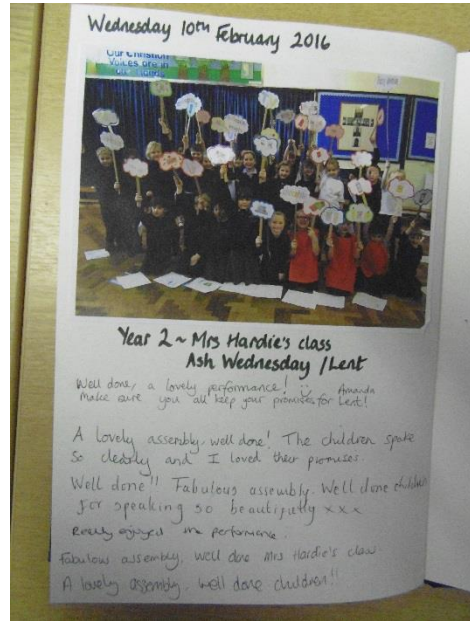 Wednesday 10th February 2016
Our Christian
Voices are in
our hands
Year 2 ~ Mrs Hardie's class
Ash Wednesday / Lent
Well done, a lovely performance! Amanda
Make sure you all keep your promises for Lent!
A lovely assembly. well done! The children spoke
so clearly and I loved their promises.
Well done!! Fabulous assembly. Well done children
for speaking so beautifully x x x
Really enjoyed the performance.
Fabulous assembly. Well done Mrs Hardie's class.
A lovely assembly. Well done children!!